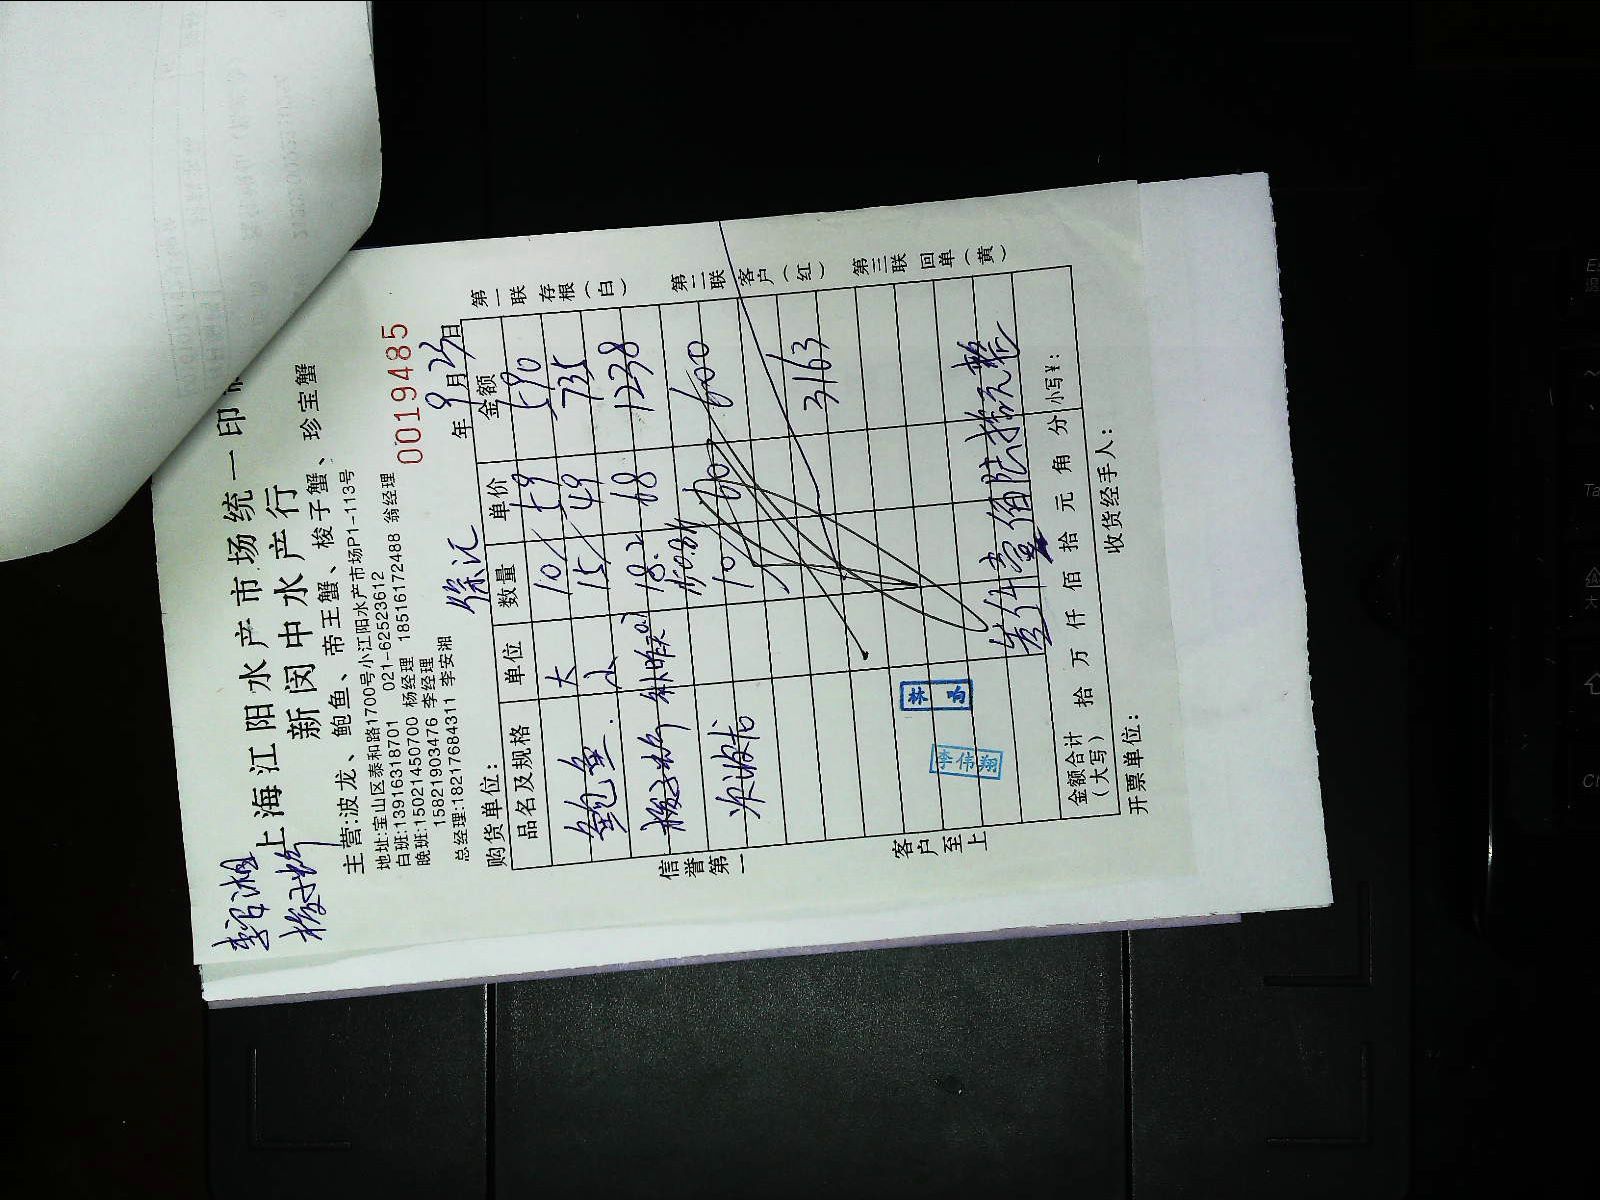 上海江阳水产市场统一印
新闵中水产行
主营:波龙、鲍鱼、帝王蟹、梭子蟹、珍宝蟹
地址:宝山区泰和路1700号小江阳水产市场P1-113号
白班:13916318701 021-62523612
晚班:15021450700 杨经理 18516172488 翁经理
15821903476 李经理
总经理:18217684311 李安湘
0019485
徐汇
购货单位: 年9月23日
品名及规格 单位 数量 单价 金额
鲍鱼 大 10 59 590
小 15 49 735
梭子蟹 补昨天0.7 18.2 68 1238
次波龙 10 60 600
3163
叁仟壹佰陆拾元整
金额合计(大写) 拾 万 仟 佰 拾 元 角 分 小写¥:
开票单位: 收货经手人:
第一联 存根(白)
第二联 客户(红)
第三联 回单(黄)
信誉第一
客户至上
李伟翔